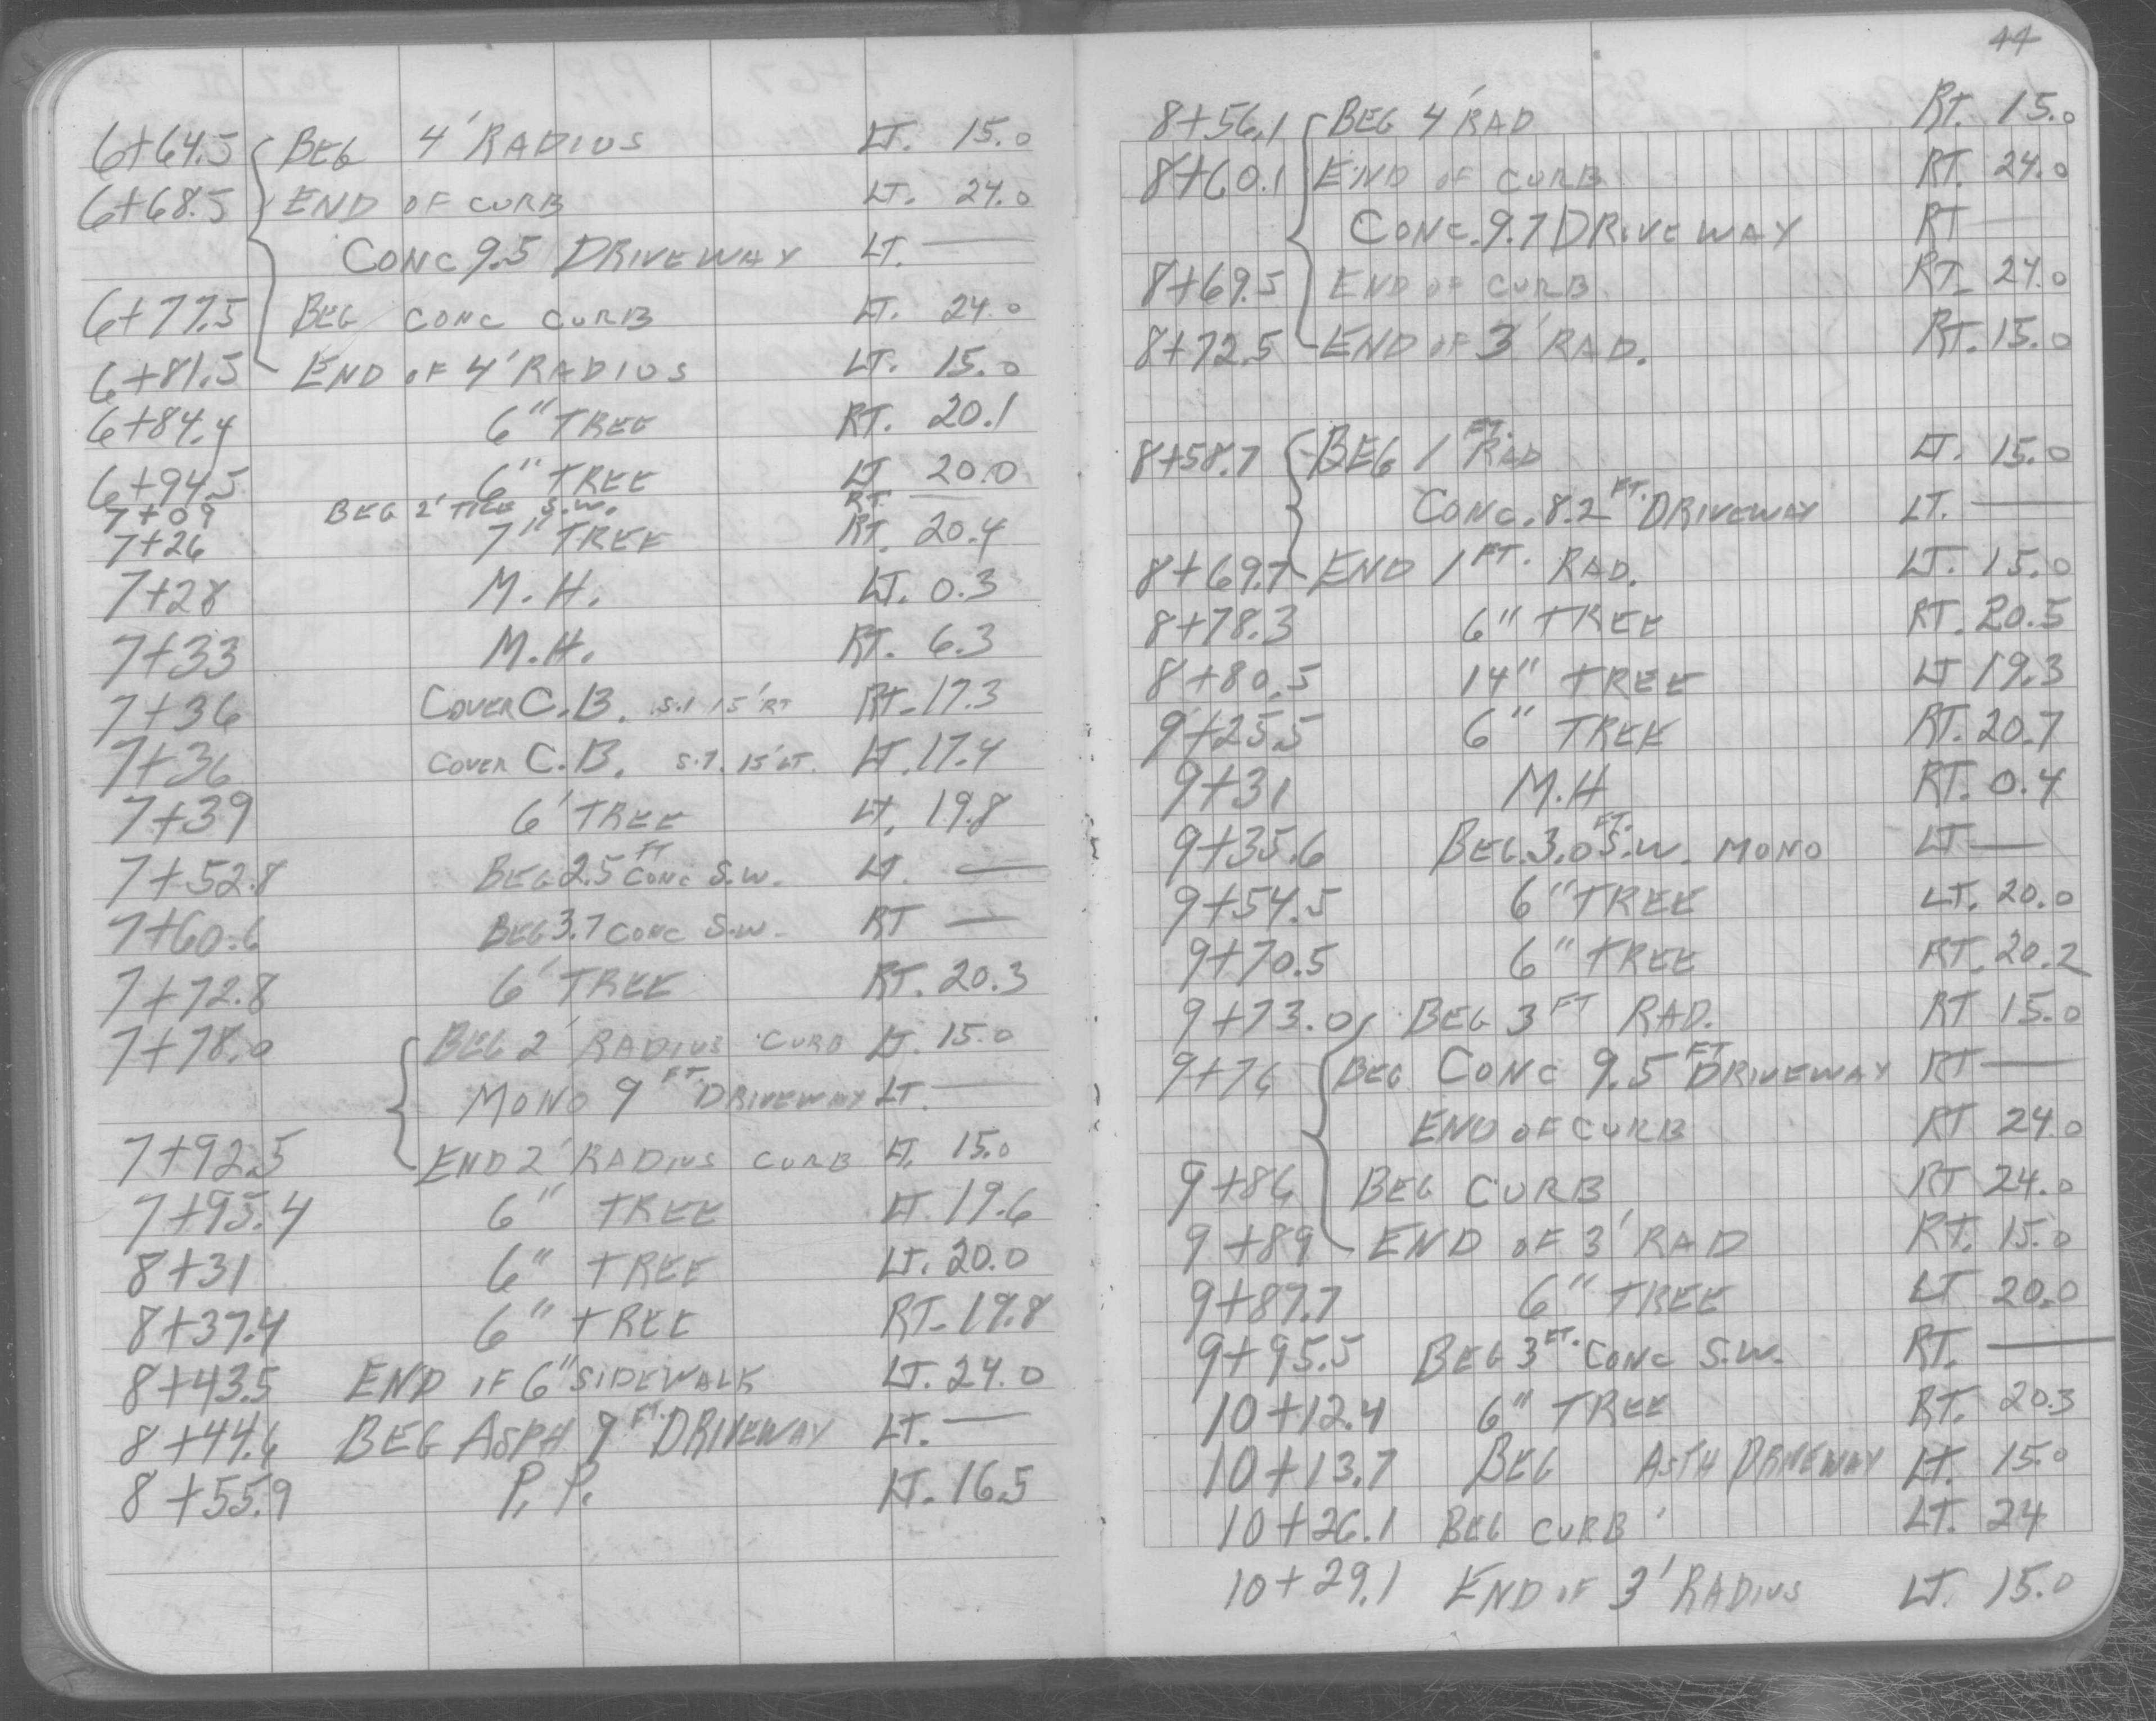 6+64.5 BEG 4' RADIUS LT. 15.0
6+68.5 END OF CURB LT. 24.0
CONC 9.5 DRIVEWAY LT. —
6+77.5 BEG CONC CURB LT. 24.0
6+81.5 END OF 4' RADIUS LT. 15.0
6+84.4 6" TREE RT. 20.1
6+94.5 6" TREE LT 20.0
7+09 BEG 2' S.W. RT.
7+26 7" TREE RT. 20.4
7+28 M.H. LT. 0.3
7+33 M.H. RT. 6.3
7+36 COVER C.B. 15' RT RT. 17.3
7+36 COVER C.B. 15' LT. LT. 17.4
7+39 6' TREE LT. 19.8
7+52.8 BEG 2.5 FT CONC S.W. LT. —
7+60.6 BEG 3.7 CONC S.W. RT —
7+72.8 6' TREE RT. 20.3
7+78.0 BEG 2' RADIUS CURB LT. 15.0
MONO 9 FT. DRIVEWAY LT. —
7+92.5 END 2' RADIUS CURB LT. 15.0
7+95.4 6" TREE LT. 19.6
8+31 6" TREE LT. 20.0
8+37.4 6" TREE RT. 19.8
8+43.5 END OF 6" SIDEWALK LT. 24.0
8+44.6 BEG ASPH 9 FT. DRIVEWAY LT. —
8+55.9 P.P. LT. 16.5
44
8+56.1 BEG 4' RAD RT. 15.0
8+60.1 END OF CURB RT. 24.0
CONC. 9.7 DRIVEWAY RT —
8+69.5 END OF CURB RT. 24.0
8+72.5 END OF 3' RAD. RT. 15.0
8+58.7 BEG 1 FT. RAD LT. 15.0
CONC. 8.2 FT. DRIVEWAY LT. —
8+69.7 END 1 FT. RAD. LT. 15.0
8+78.3 6" TREE RT. 20.5
8+80.5 14" TREE LT 19.3
9+25.5 6" TREE RT. 20.7
9+31 M.H RT. 0.4
9+35.6 BEG. 3.0 FT. S.W. MONO LT —
9+54.5 6" TREE LT. 20.0
9+70.5 6" TREE RT. 20.2
9+73.0 BEG 3 FT RAD. RT 15.0
9+76 BEG CONC 9.5 FT DRIVEWAY RT —
END OF CURB RT 24.0
9+86 BEG CURB RT 24.0
9+89 END OF 3' RAD RT. 15.0
9+89.7 6" TREE LT 20.0
9+95.5 BEG 3 FT. CONC S.W. RT. —
10+12.4 6" TREE RT. 20.3
10+13.7 BEG ASPH DRIVEWAY LT. 15.0
10+26.1 BEG CURB LT. 24
10+29.1 END OF 3' RADIUS LT. 15.0